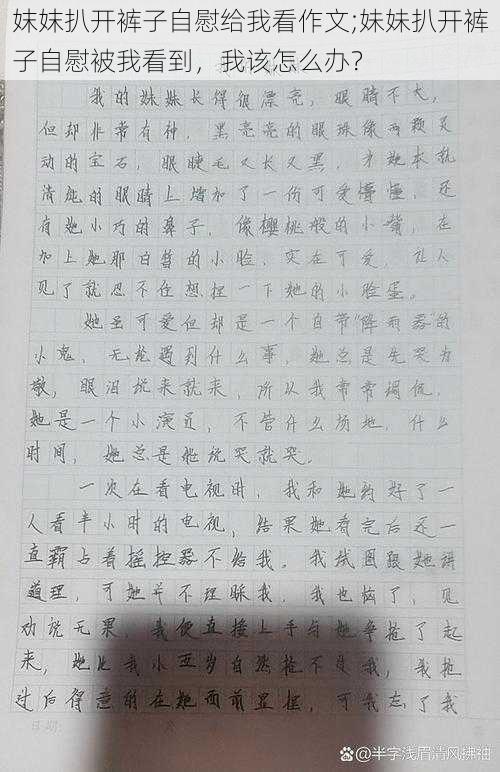 我的妹妹长得很漂亮，眼睛不大，
但却非常有神，黑亮亮的眼珠像两颗灵
动的宝石，眼睫毛又长又黑，
清纯的眼睛上增加了一份可爱懵懂，还
有她小巧的鼻子，像樱桃般的小嘴，在
加上她那白皙的小脸，实在可爱，让人
见了就忍不住想捏一下她的小脸蛋。
她虽可爱但却是一个自带“降雨器”的
小鬼，无论遇到什么事，她总是先哭为
敬，眼泪说来就来，所以我常常调侃，
她是一个小演员，不管什么场地，什么
时间，她总是能说哭就哭。
一次在看电视时，我和她约好了一
人看半小时的电视，结果她看完后还一
直霸占着摇控器不给我。我试图跟她讲
道理，可她并不理睬我，我也恼了，见
劝说无果，我便直接上手与她争抢了起
来，她比我小五岁自然抢不过我，我抢
过后得意的在她面前显摆，可我忘了我
日期：
@半字浅眉清风拂袖